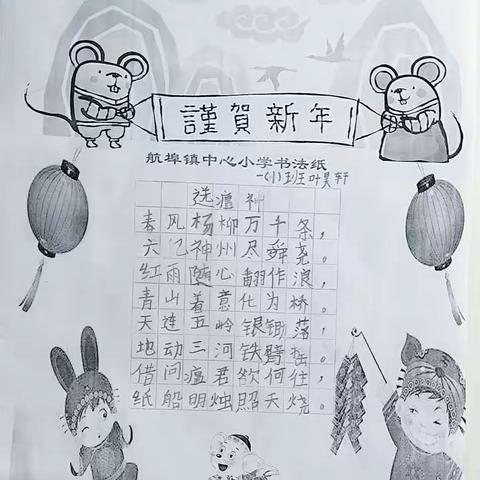 謹賀新年
航埠镇中心小学书法纸
一(1)班叶昊轩
送瘟神
春风杨柳万千条，
六亿神州尽舜尧。
红雨随心翻作浪，
青山着意化为桥。
天连五岭银锄落，
地动三河铁臂摇。
借问瘟君欲何往，
纸船明烛照天烧。